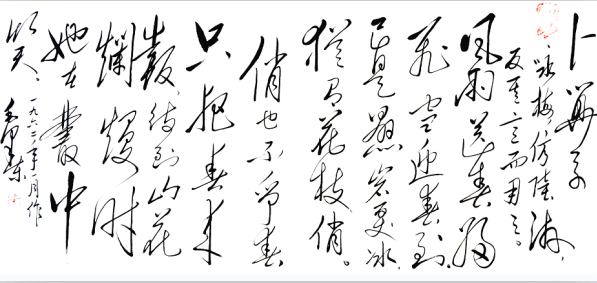 卜算子
咏梅 仿陆游,
反其意而用之。
风雨送春归
飞雪迎春到.
已是悬岩百丈冰.
犹有花枝俏。
俏也不争春
只把春来
报,待到山花
爛熳时
她在叢中
笑、
一月作
毛泽东